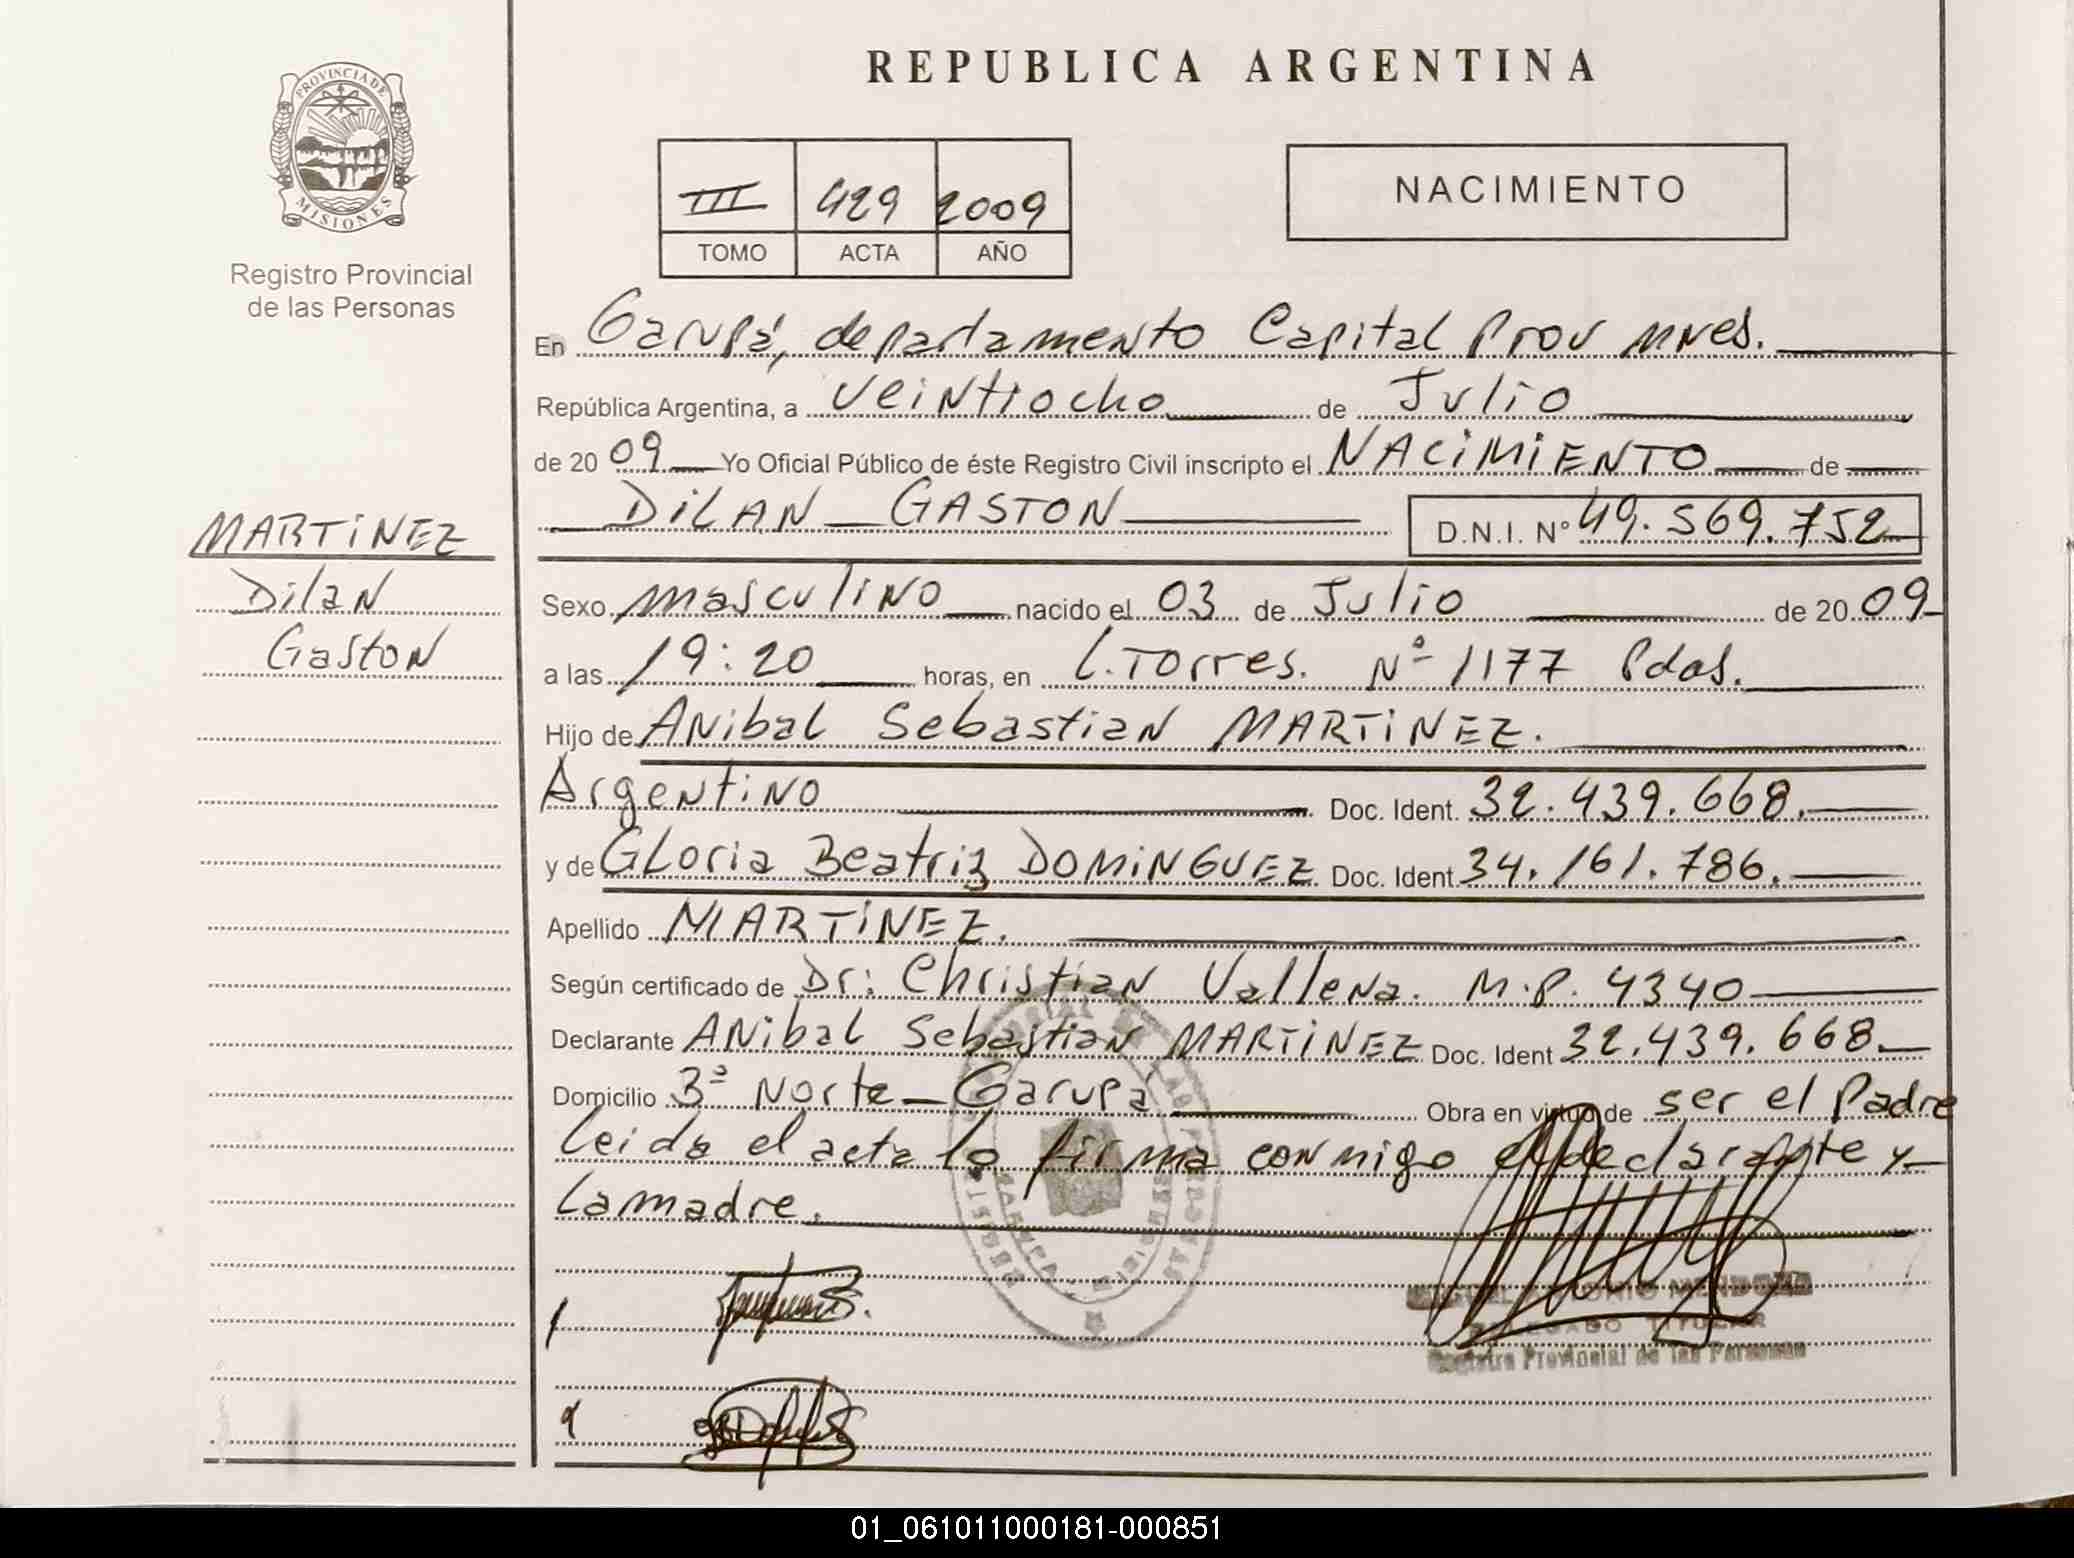 REPUBLICA ARGENTINA
PROVINCIA DE
MISIONES
Registro Provincial
de las Personas
III 429 2009
TOMO ACTA AÑO
NACIMIENTO
En Garupá, departamento Capital Prov Mnes.
República Argentina, a veintiocho de Julio
de 2009 Yo Oficial Público de éste Registro Civil inscripto el NACIMIENTO de
DILAN GASTON D.N.I. Nº 49.569.752
MARTINEZ
Dilan
Gaston
Sexo masculino nacido el 03 de Julio de 2009
a las 19:20 horas, en L. Torres. Nº 1177 Pdas.
Hijo de Anibal Sebastian MARTINEZ.
Argentino Doc. Ident. 32.439.668.
y de Gloria Beatriz DOMINGUEZ Doc. Ident. 34.161.786.
Apellido MARTINEZ.
Según certificado de Dr: Christian Vallena. M.P. 4340
Declarante Anibal Sebastian MARTINEZ Doc. Ident 32.439.668
Domicilio 3ª Norte - Garupá Obra en virtud de ser el Padre
leida el acta lo firma conmigo el declarante y
la madre.
DELEGADO TITULAR
Registro Provincial de las Personas
01_061011000181-000851